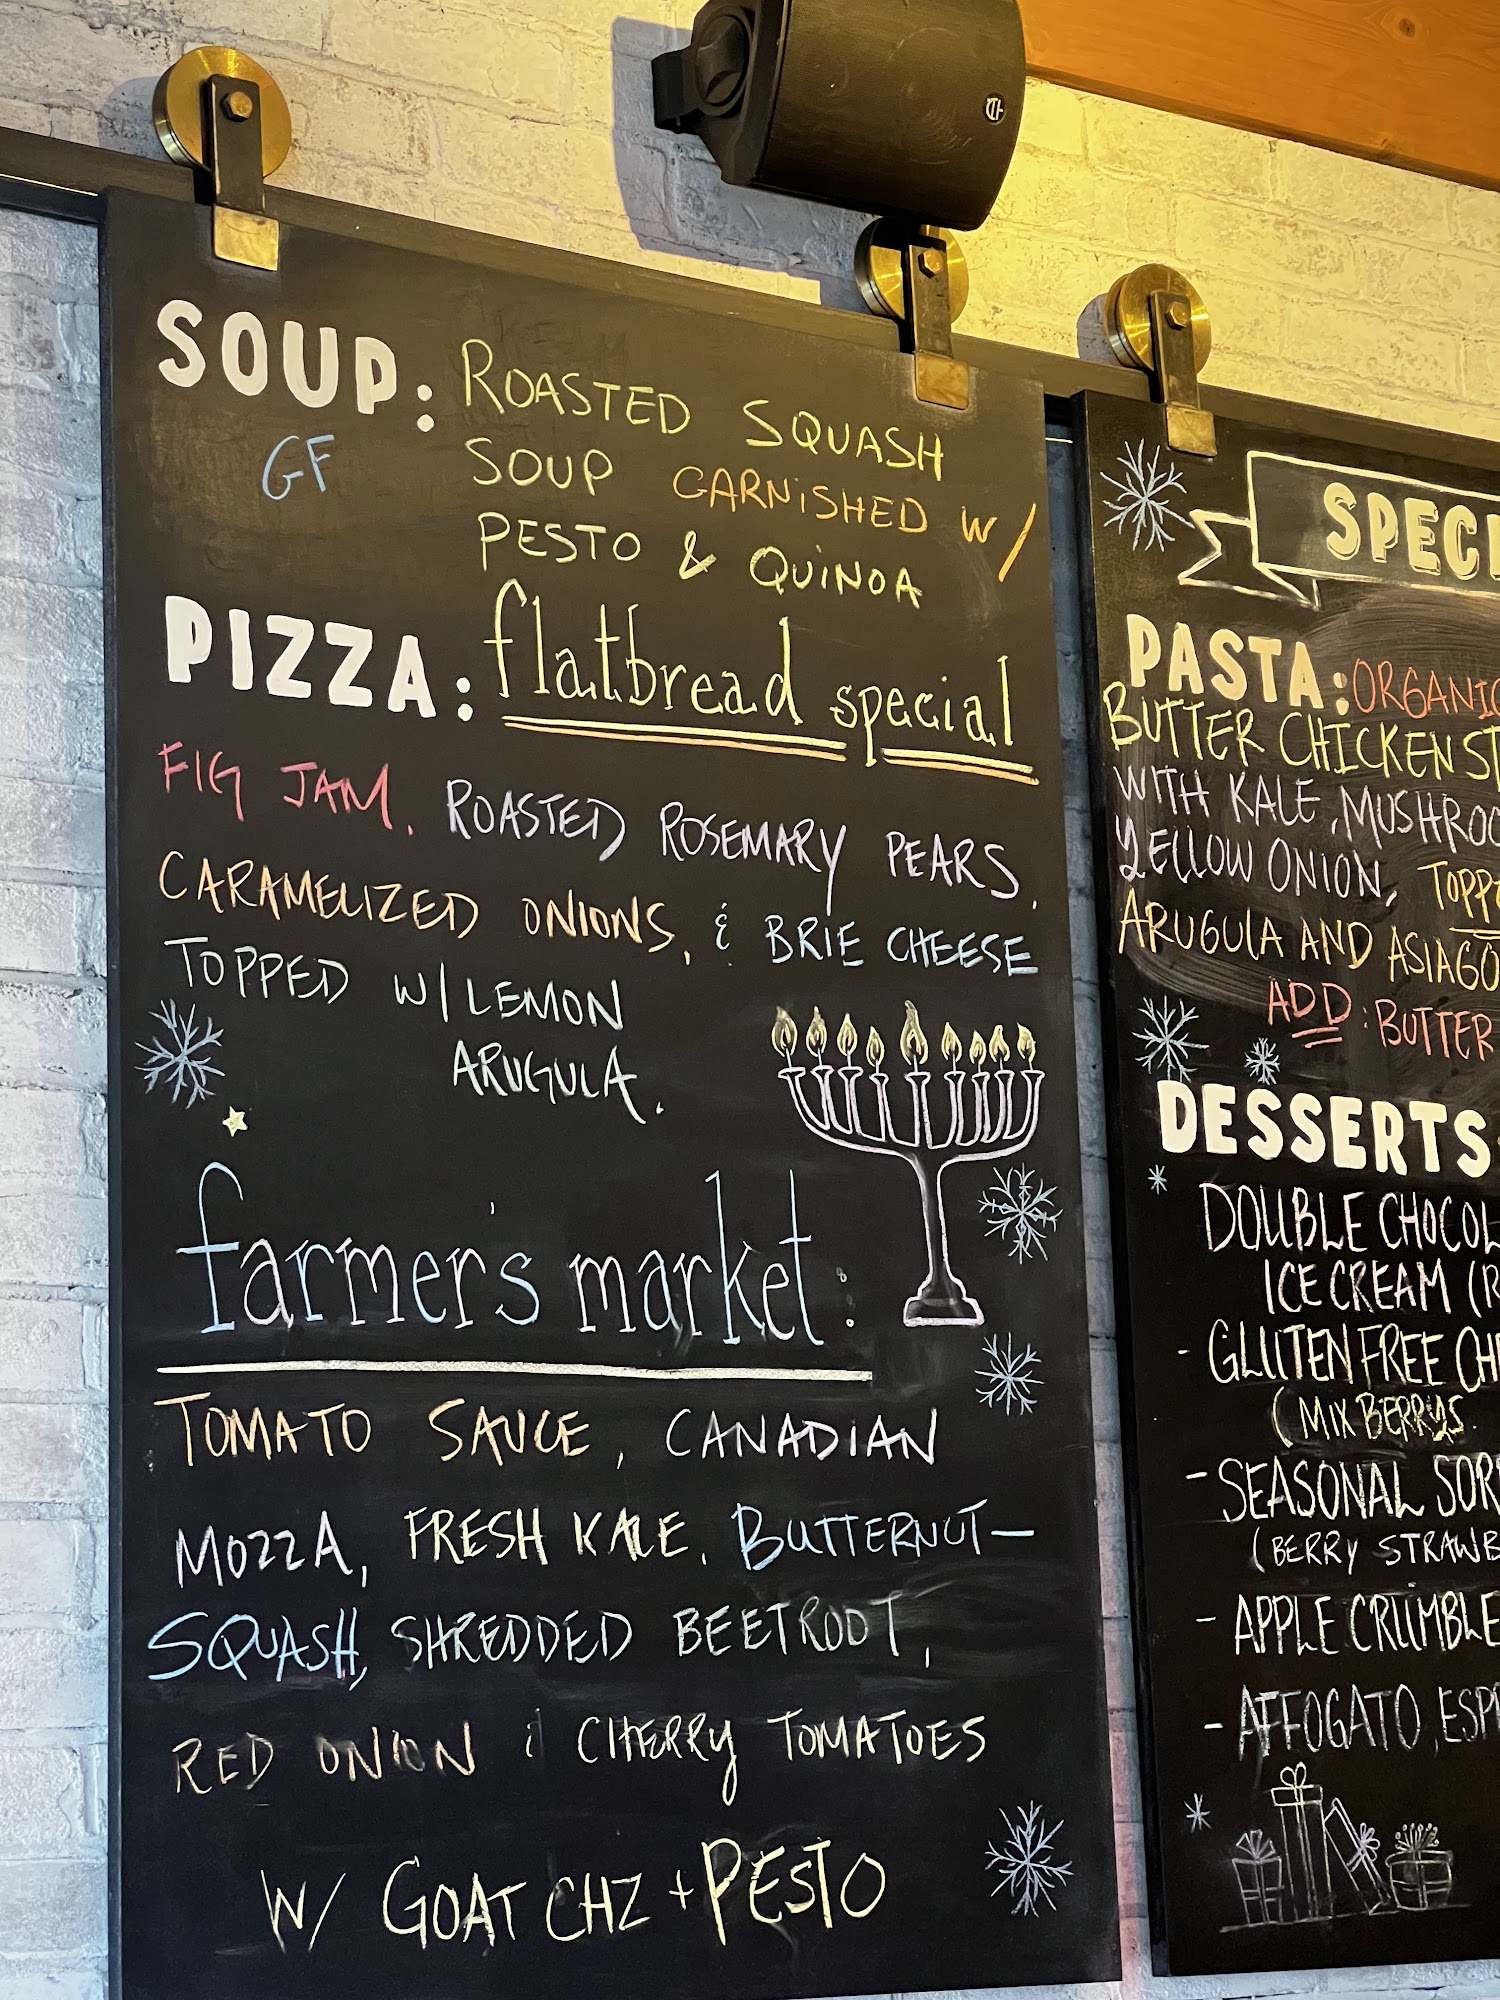 SOUP: ROASTED SQUASH
GF SOUP GARNISHED W/
PESTO & QUINOA
PIZZA: flatbread special
FIG JAM, ROASTED ROSEMARY PEARS,
CARAMELIZED ONIONS, & BRIE CHEESE
TOPPED W/ LEMON
ARUGULA.
farmer's market:
TOMATO SAUCE, CANADIAN
MOZZA, FRESH KALE, BUTTERNUT-
SQUASH, SHREDDED BEETROOT,
RED ONION & CHERRY TOMATOES
W/ GOAT CHZ + PESTO
SPECI
PASTA: ORGANIC
BUTTER CHICKEN ST
WITH KALE, MUSHROO
YELLOW ONION, TOPP
ARUGULA AND ASIAGO
ADD: BUTTER
DESSERTS
DOUBLE CHOCOL
ICE CREAM (R
- GLUTEN FREE CH
(MIX BERRYS.
- SEASONAL SOR
(BERRY STRAWB
- APPLE CRUMBLE
- AFFOGATO, ESP